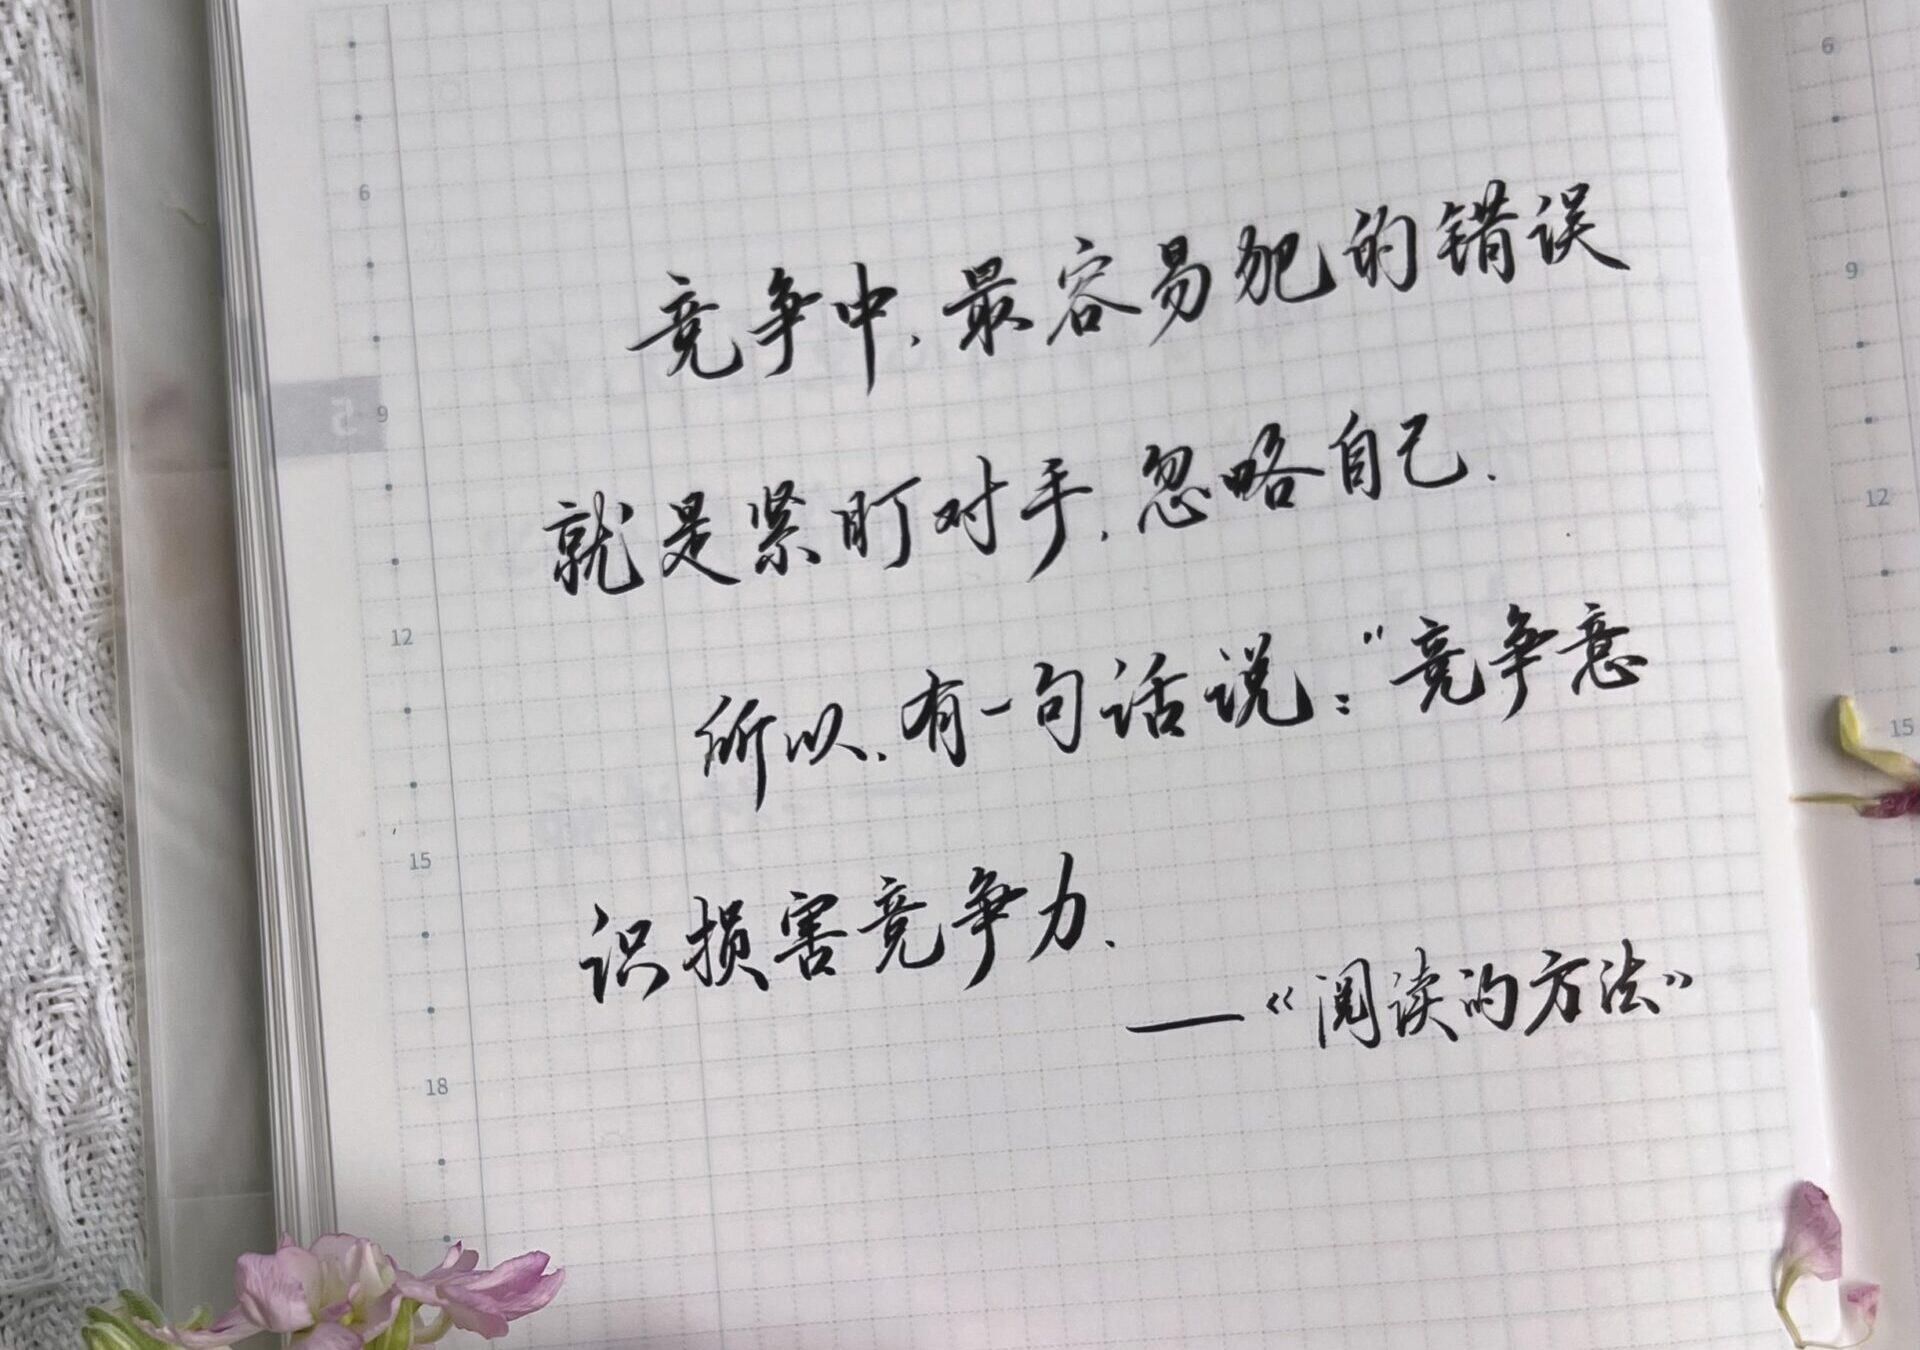 竞争中,最容易犯的错误
就是紧盯对手,忽略自己.
所以,有一句话说:"竞争意
识损害竞争力.
——《阅读的方法》
6
9
12
15
18
5
6
9
12
15